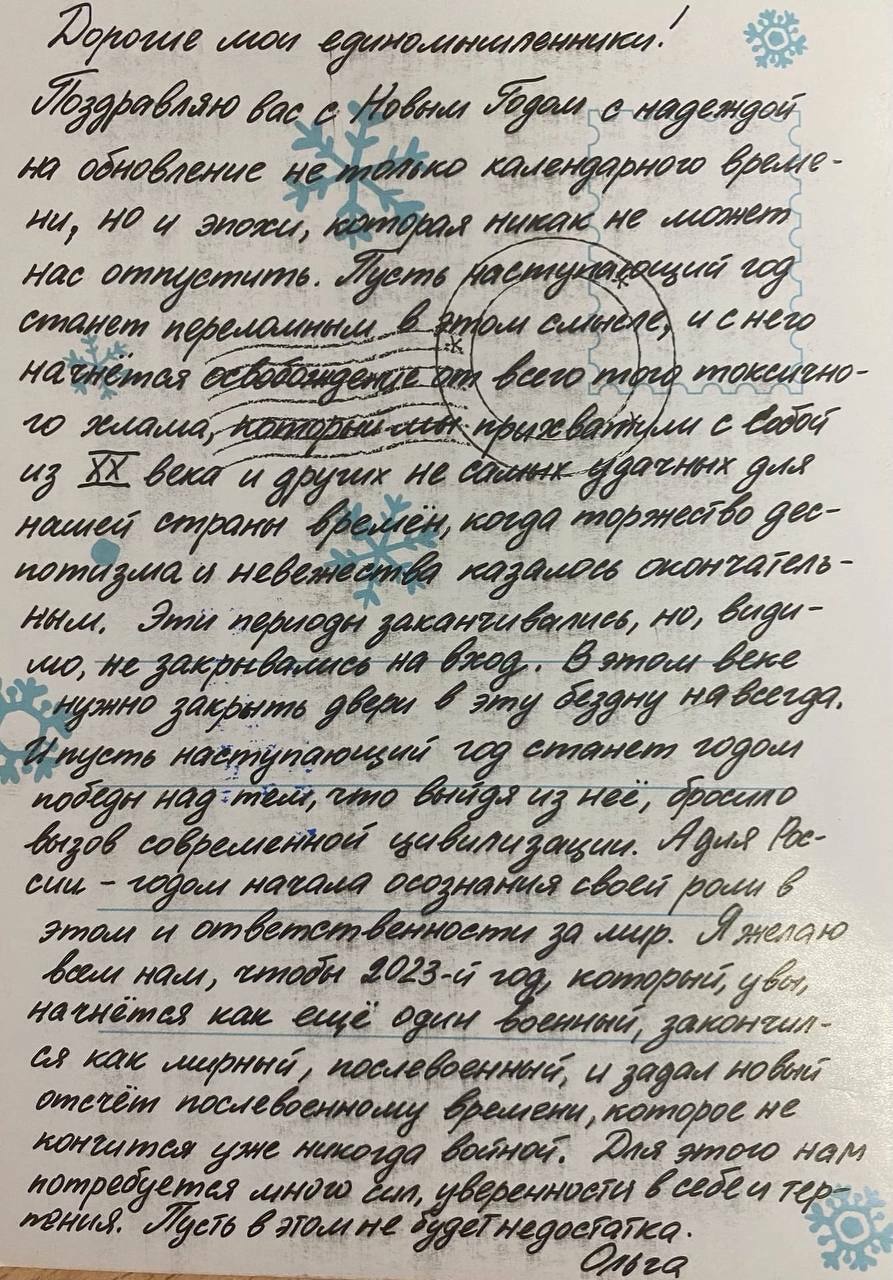 Дорогие мои единомышленники!
Поздравляю вас с Новым Годом с надеждой
на обновление не только календарного време-
ни, но и эпохи, которая никак не может
нас отпустить. Пусть наступающий год
станет переломным в этом смысле, и с него
начнётся освобождение от всего того токсично-
го хлама, который мы прихватили с собой
из XX века и других не самых удачных для
нашей страны времён, когда торжество дес-
потизма и невежества казалось окончатель-
ным. Эти периоды заканчивались, но, види-
мо, не закрывались на вход. В этом веке
нужно закрыть двери в эту бездну навсегда.
И пусть наступающий год станет годом
победы над тем, что выйдя из неё, бросило
вызов современной цивилизации. А для Рос-
сии - годом начала осознания своей роли в
этом и ответственности за мир. Я желаю
всем нам, чтобы 2023-й год, который, увы,
начнётся как ещё один военный, закончил-
ся как мирный, послевоенный, и задал новый
отсчёт послевоенному времени, которое не
кончится уже никогда войной. Для этого нам
потребуется много сил, уверенности в себе и тер-
пения. Пусть в этом не будет недостатка.
Ольга